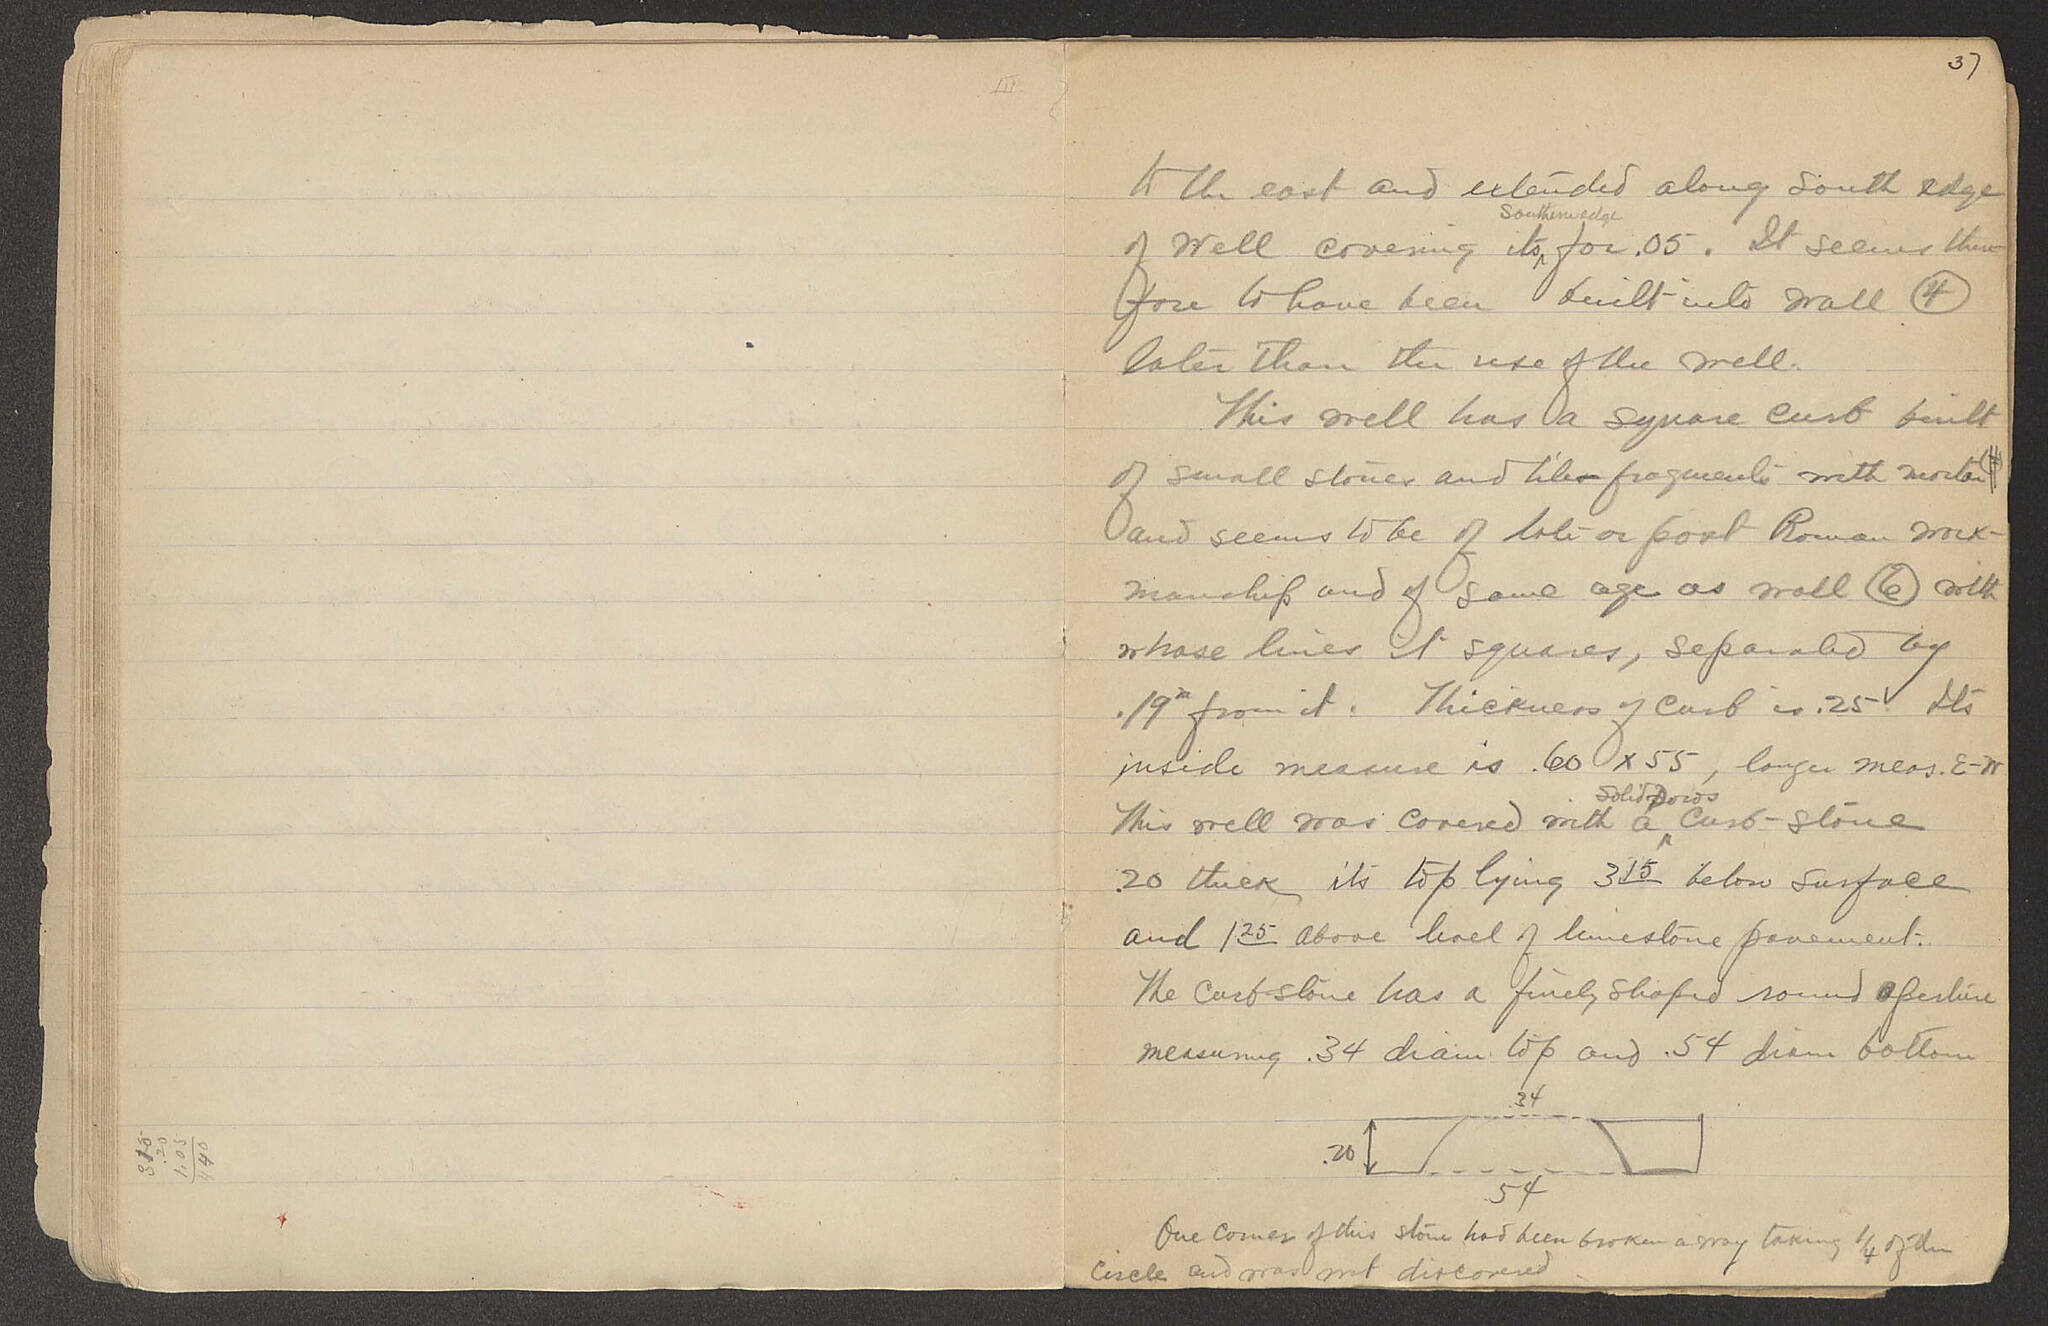 37
to the east and extended along south edge
of well covering its southern edge for .05. It seems there-
fore to have been built into wall 4
later than the use of the well.
This well has a square curb built
of small stones and tile fragments with mortar
and seems to be of late or post Roman work-
manship and of same age as wall 6 with
whose lines it squares, separated by
.19m from it. Thickness of curb is .25. Its
inside measure is .60 x 55, longer meas. E-W
This well was covered with a solid poros curb-stone
.20 thick its top lying 3 15 below surface
and 1 25 above level of limestone pavement.
The curb stone has a finely shaped round aperture
measuring .34 diam top and .54 diam bottom
34
.20
54
One corner of this stone had been broken away taking 1/4 of the
circle and was not discovered.
315
.20
1.05
440